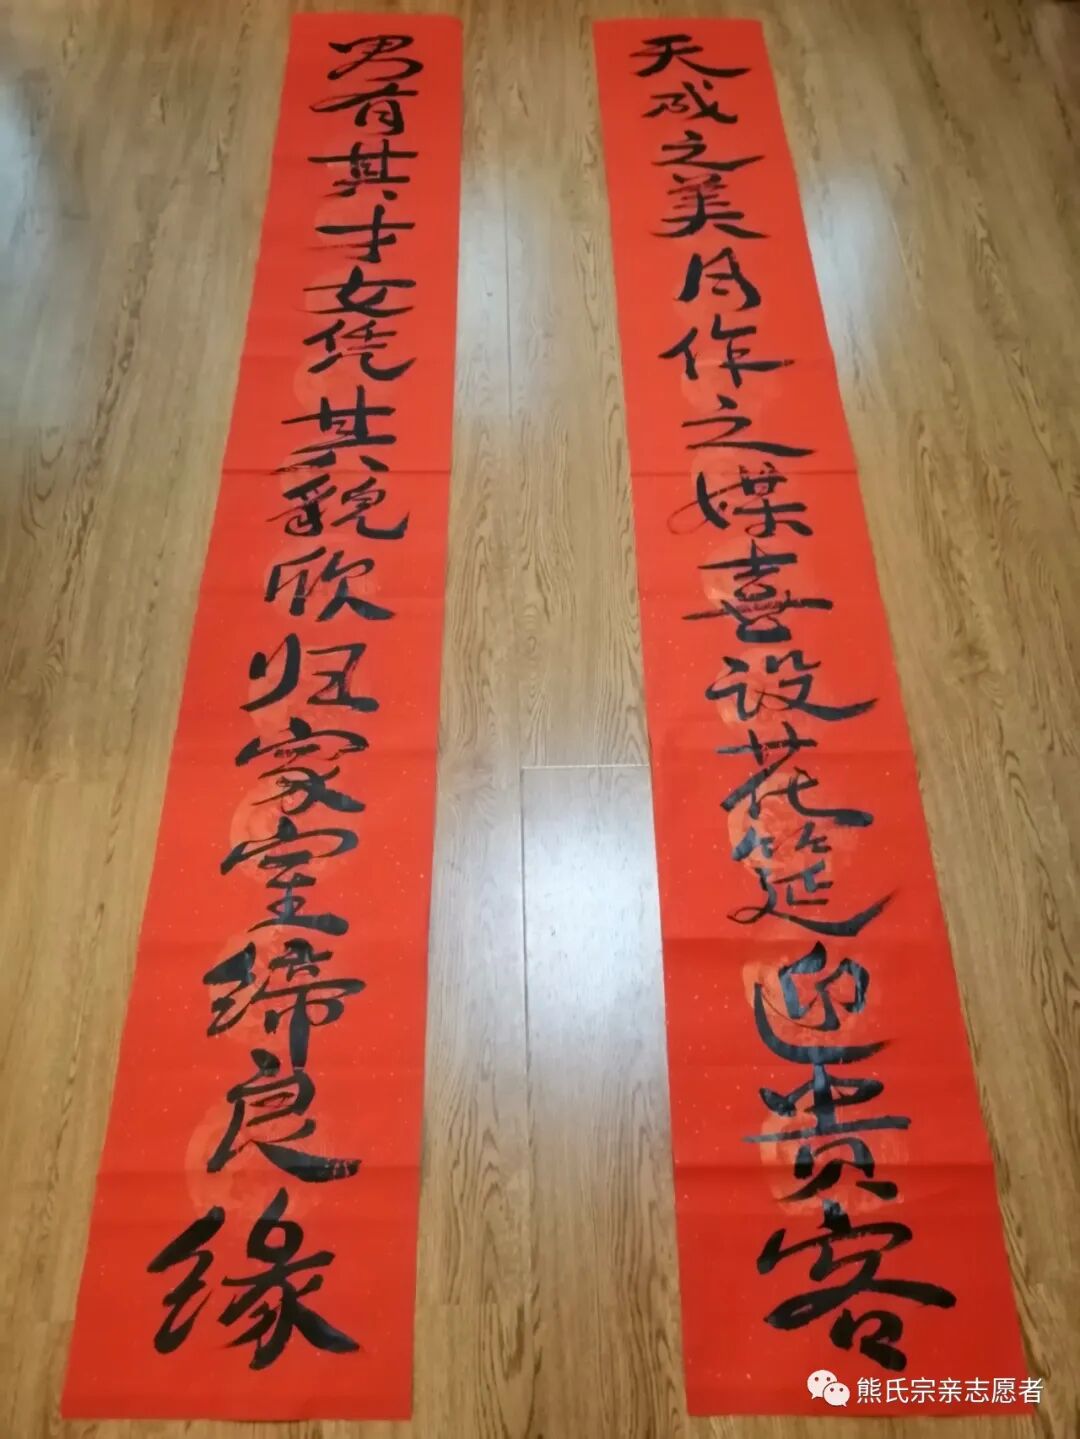 天成之美月作之媒喜设花筵迎贵客
男有其才女凭其貌欣归家室缔良缘
熊氏宗亲志愿者